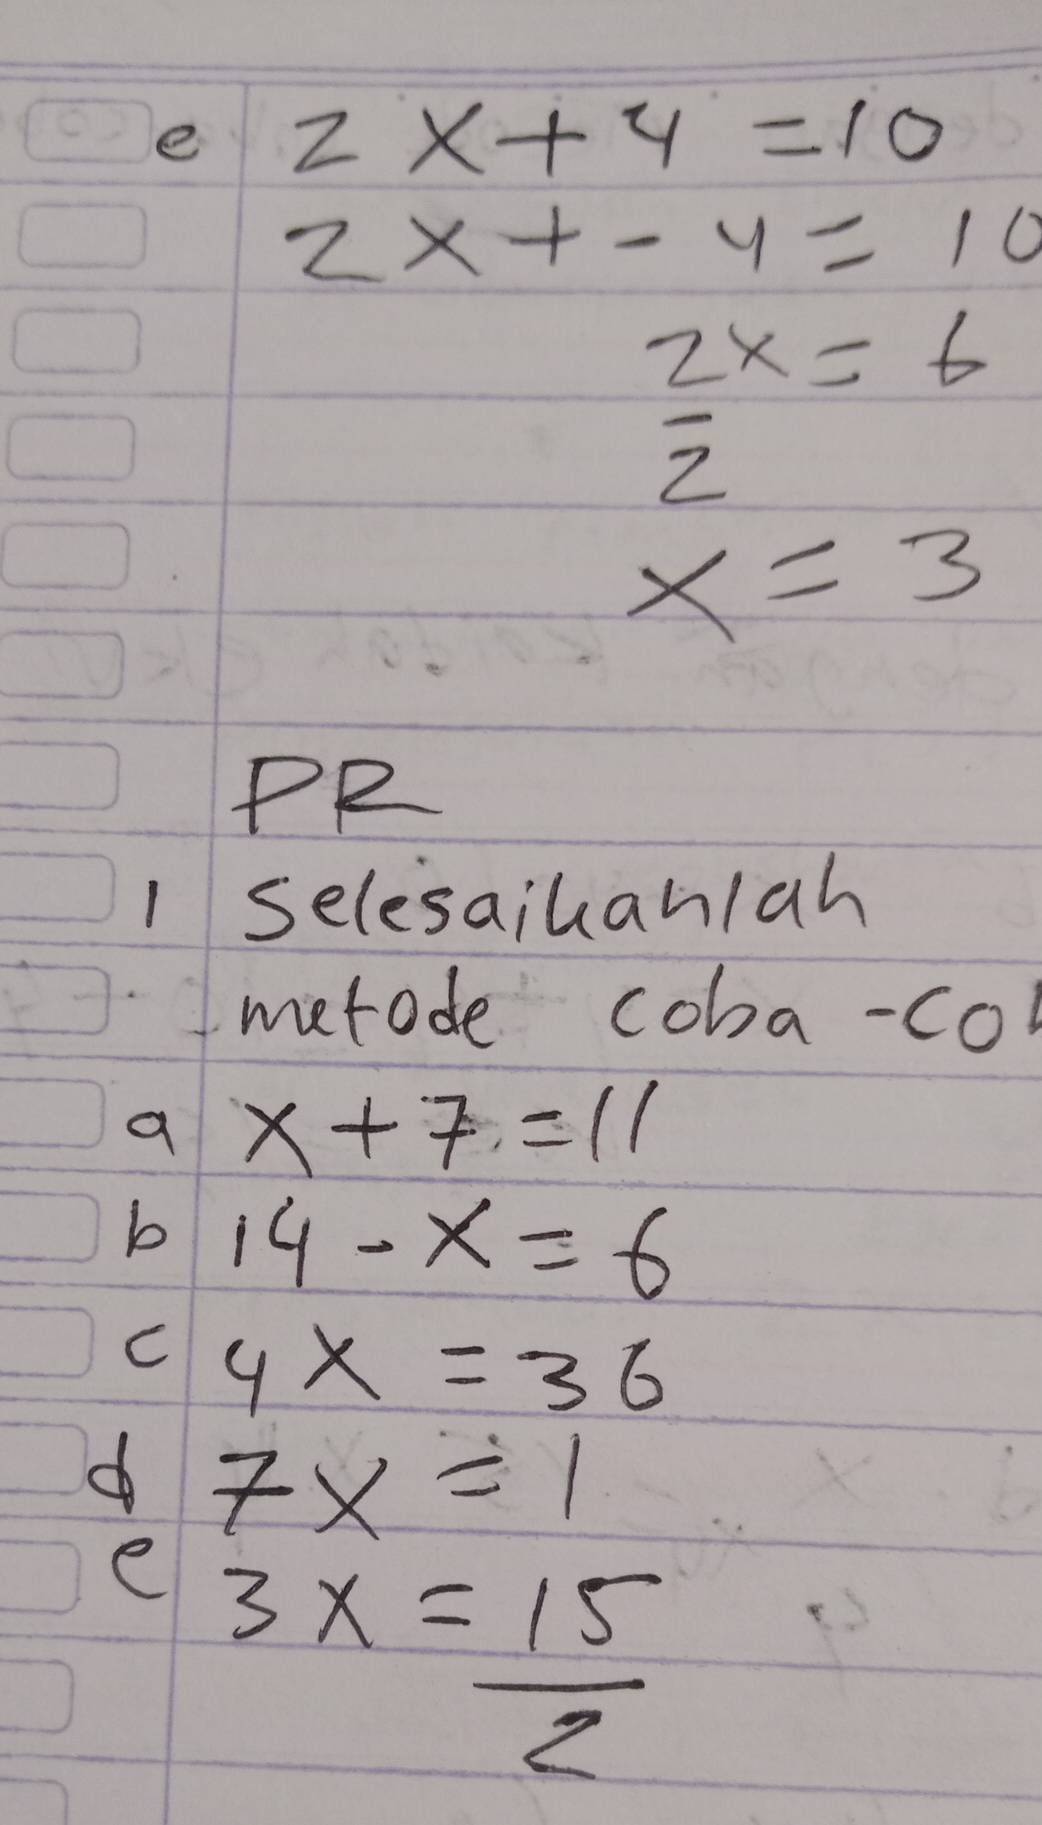 e 2x + 4 = 10
2x + - 4 = 10
2x = 6
2
x = 3
PR
1 Selesaikanlah
metode coba -co
a x + 7 = 11
b 14 - x = 6
c 4x = 36
d 7x = 1
e 3x = 15
2